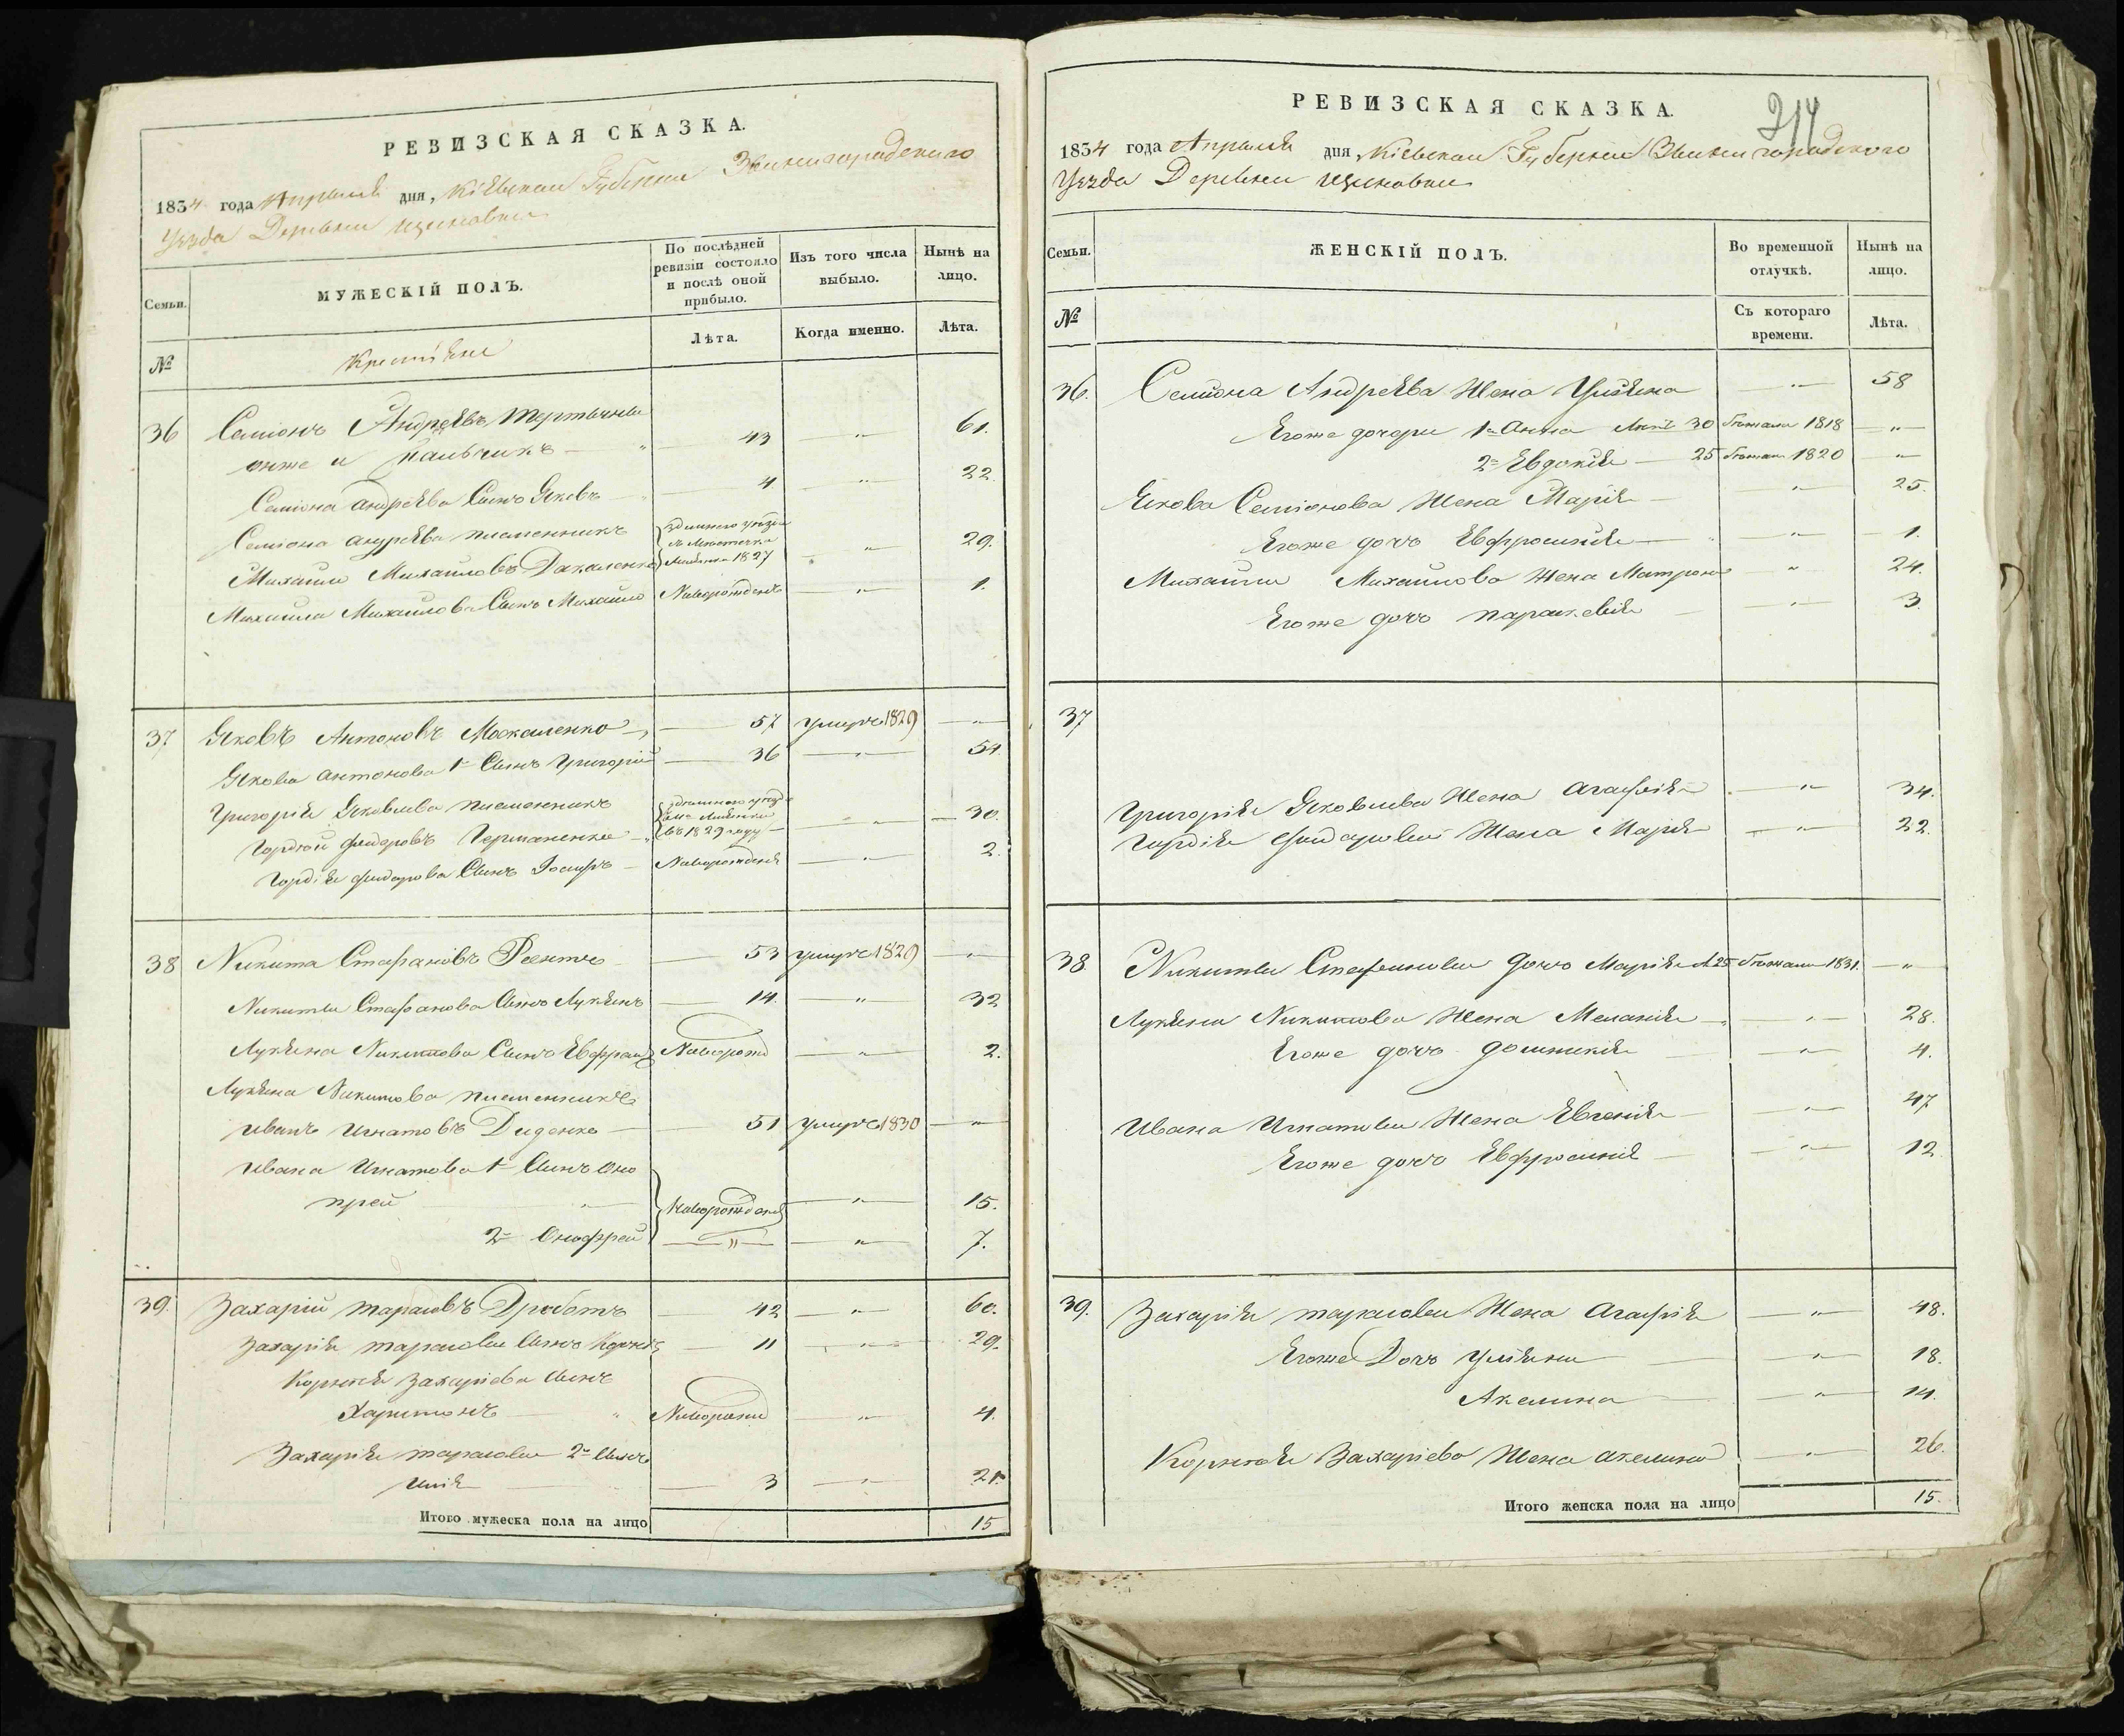 РЕВИЗСКАЯ СКАЗКА.
1834 года Апреля дня, Кіевской Губерніи Звенигородскаго
Уезда Деревни
Семьи.
МУЖЕСКІЙ ПОЛЪ.
По послѣдней ревизіи состояло и послѣ оной прибыло.
Изъ того числа выбыло.
Нынѣ на лицо.
№
Лѣта.
Когда именно.
Лѣта.
Крестьяне
36 Семіонъ Андреевъ
онже и Пальчикъ 43 61.
Семіона Андреева Сынъ Яковъ 4 22.
Семіона Андреева племенникъ
Михайло Михайловъ 1827 29.
Михайла Михайлова Сынъ Михайло Новорожденъ 1.
37 Яковъ Антоновъ Москаленко 57 умеръ 1829
Якова Антонова 1й Сынъ Григорій 36 54.
Григорія Яковлева племенникъ
Гордѣй Федоровъ Германенко въ 1829 году 30.
Гордія Федорова Сынъ Іосифъ Новорожденъ 2.
38 Никита Стефановъ 53 умеръ 1829
Никиты Стефанова Сынъ Лукянъ 14. 32
Лукяна Никитова Сынъ Новорожд 2.
Лукяна Никитова племенникъ
иванъ Игнатовъ Диденко 51 умеръ 1830
ивана Игнатова 1й Сынъ Оно
прей Новорожденъ 15.
2й Онофрей " 7.
39. Захарій Тарасовъ Дроботъ 42 60.
Захарія Тарасова Сынъ Корней 11 29.
Корнея Захаріева Сынъ
Харитонъ Новорожд 4.
Захарія Тарасова 2й Сынъ
Илія 3 21.
Итого мужеска пола на лицо 15
РЕВИЗСКАЯ СКАЗКА.
214
1834 года Апреля дня, Кіевской Губерніи Звенигородского
Уезда Деревни
Семьи.
ЖЕНСКІЙ ПОЛЪ.
Во временной отлучкѣ.
Нынѣ на лицо.
№
Съ котораго времени.
Лѣта.
36. Семіона Андреева Жена Уліяна 58
Егоже дочери 1я Анна 30 1818
2я Евдокія 25 1820
Якова Семіонова Жена Марія 25.
Егоже дочь Евфросинія 1.
Михайли Михайлова Жена Матрона 24.
Егоже дочь Параскевія 3.
37
Григорія Яковлева Жена Агафія 34.
Гордія Федорова Жена Марія 22.
38. Никиты Стефанова дочь Марія 25 1831.
Лукяна Никитова Жена Меланія 28.
Егоже дочь 4.
Ивана Игнатова Жена Евгенія 47
Егоже дочь Евфросинія 12
39. Захарія Тарасова Жена Агафія 48.
Егоже Дочь Уліяна 18.
Акелина 14.
Корнея Захаріева Жена Акелина 26.
Итого женска пола на лицо 15.